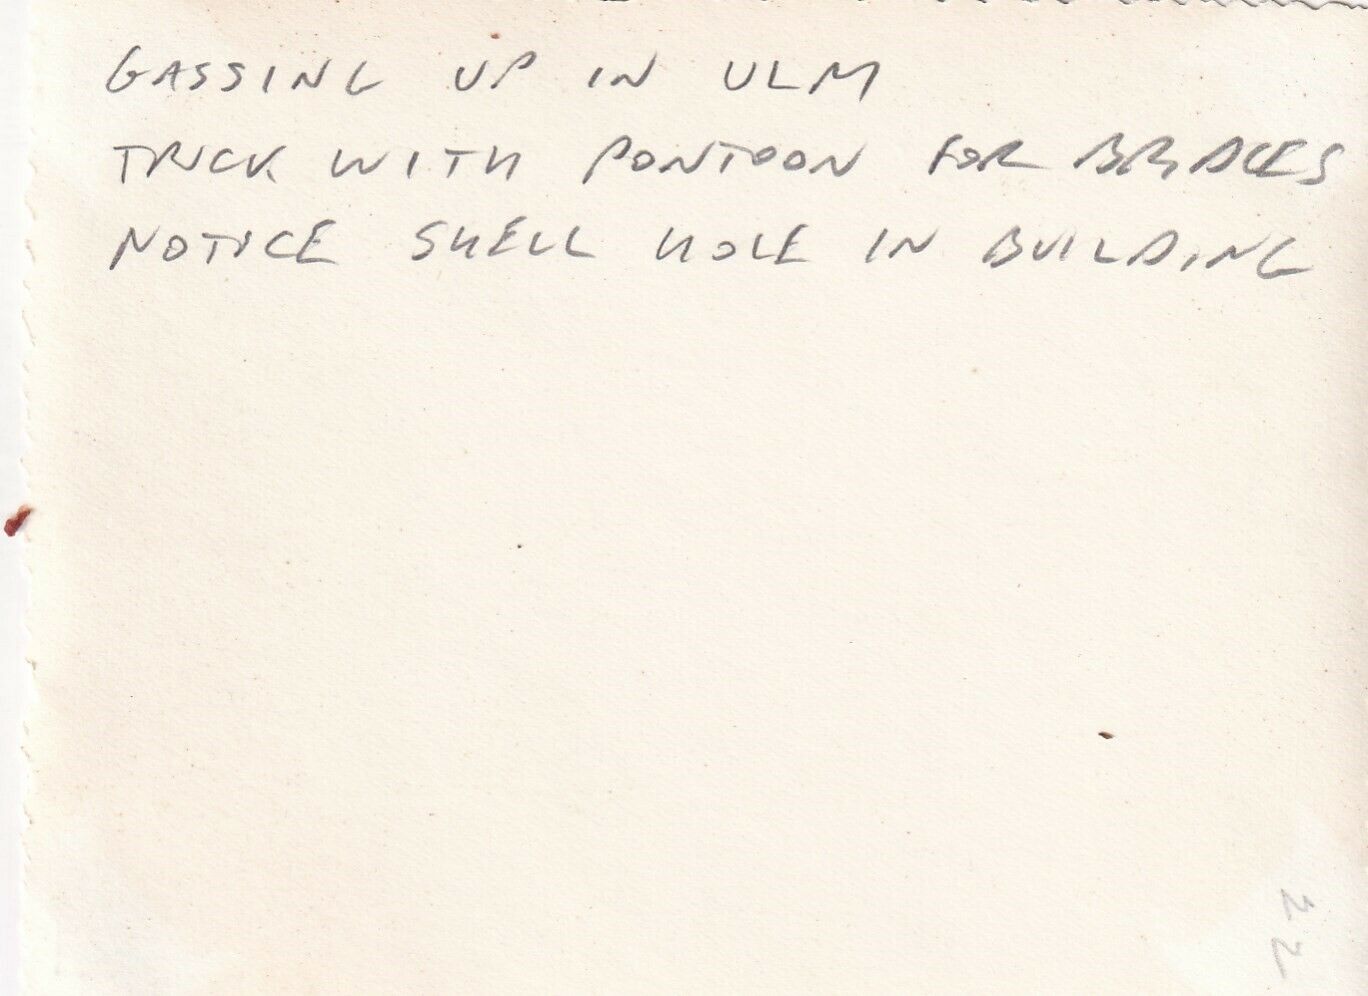 GASSING UP IN ULM
TRUCK WITH PONTOON FOR BRIDGES
NOTICE SHELL HOLE IN BUILDING
22